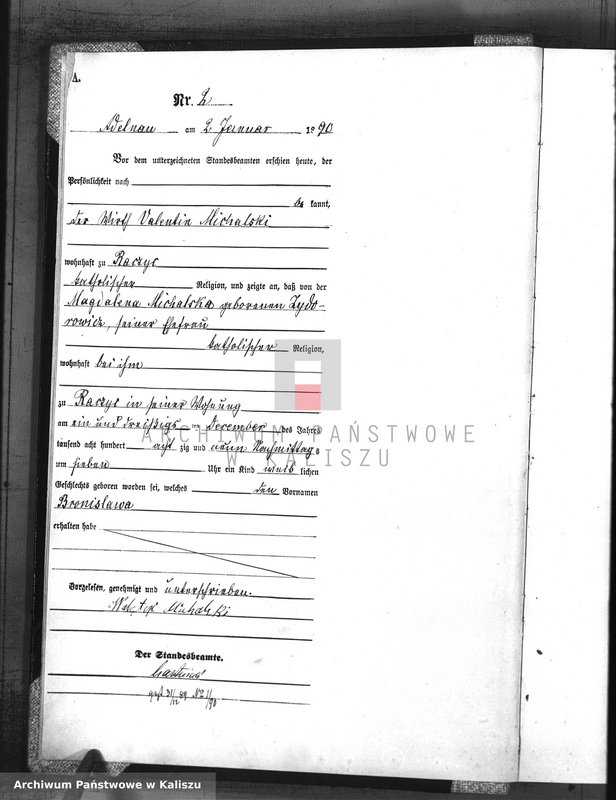 A.
Nr. 2
Adelnau am 2 Januar 1890
Vor dem unterzeichneten Standesbeamten erschien heute, der
Persönlichkeit nach
be kannt,
der Wirth Valentin Michalski
wohnhaft zu Raczyc
katholischer Religion, und zeigte an, daß von der
Magdalena Michalska geborenen Zydo-
rowicz, seiner Ehefrau
katholischer Religion,
wohnhaft bei ihm
zu Raczyc in seiner Wohnung
am ein und dreißigs ten December des Jahres
tausend acht hundert acht zig und neun Nachmittags
um sieben Uhr ein Kind weib lichen
Geschlechts geboren worden sei, welches den Vornamen
Bronislawa
erhalten habe
Vorgelesen, genehmigt und unterschrieben.
Michalski
Der Standesbeamte.
31/12 89 No 1/90
ARCHIWUM PAŃSTWOWE
W KALISZU
Archiwum Państwowe w Kaliszu